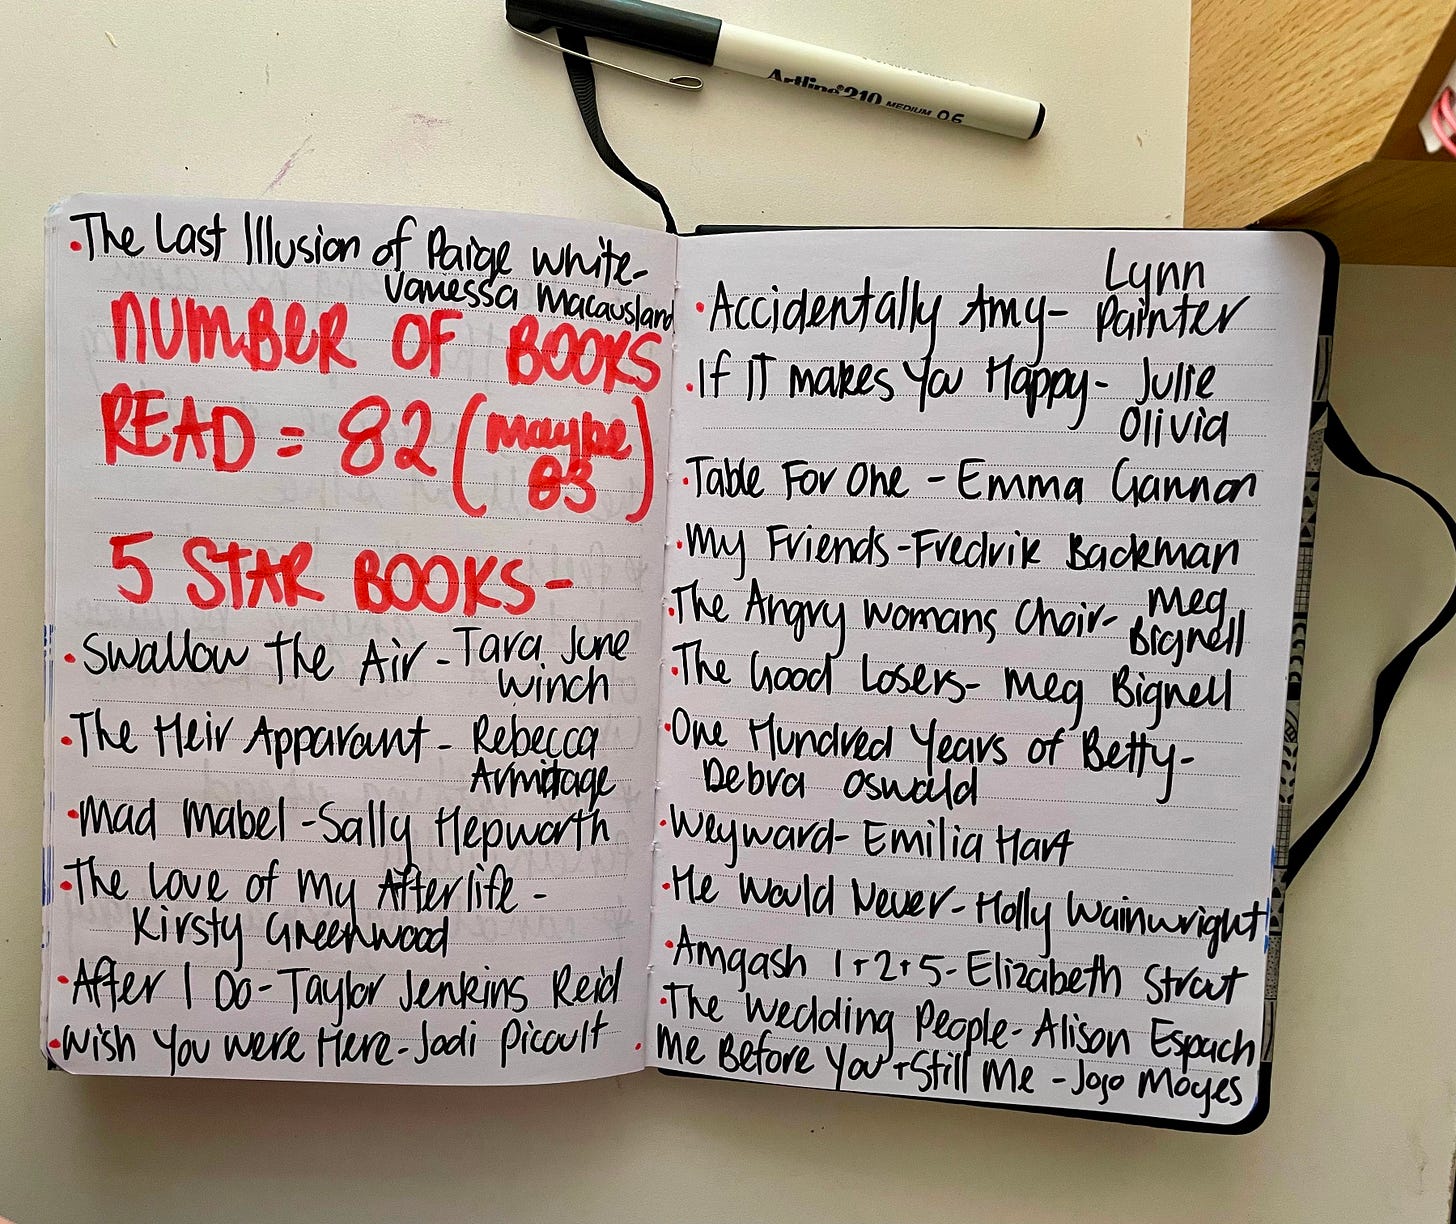 Artline®210 MEDIUM 0.6
•The Last Illusion of Paige White-
Vanessa Macausland
NUMBER OF BOOKS
READ = 82 (maybe
83)
5 STAR BOOKS-
•Swallow The Air - Tara June
Winch
•The Heir Apparant - Rebecca
Armitage
•Mad Mabel - Sally Hepworth
•The Love of My Afterlife -
Kirsty Greenwood
•After I Do - Taylor Jenkins Reid
•Wish You Were Here - Jodi Picoult
•Accidentally Amy- Lynn
Painter
•If IT makes You Happy- Julie
Olivia
•Table For One - Emma Gannon
•My Friends - Fredrik Backman
•The Angry Womans Choir- Meg
Bignell
•The Good Losers- Meg Bignell
•One Hundred Years of Betty-
Debra Oswald
•Weyward- Emilia Hart
•He Would Never - Holly Wainwright
•Amgash 1+2+5- Elizabeth Strout
•The Wedding People- Alison Espach
•Me Before You + Still Me - Jojo Moyes